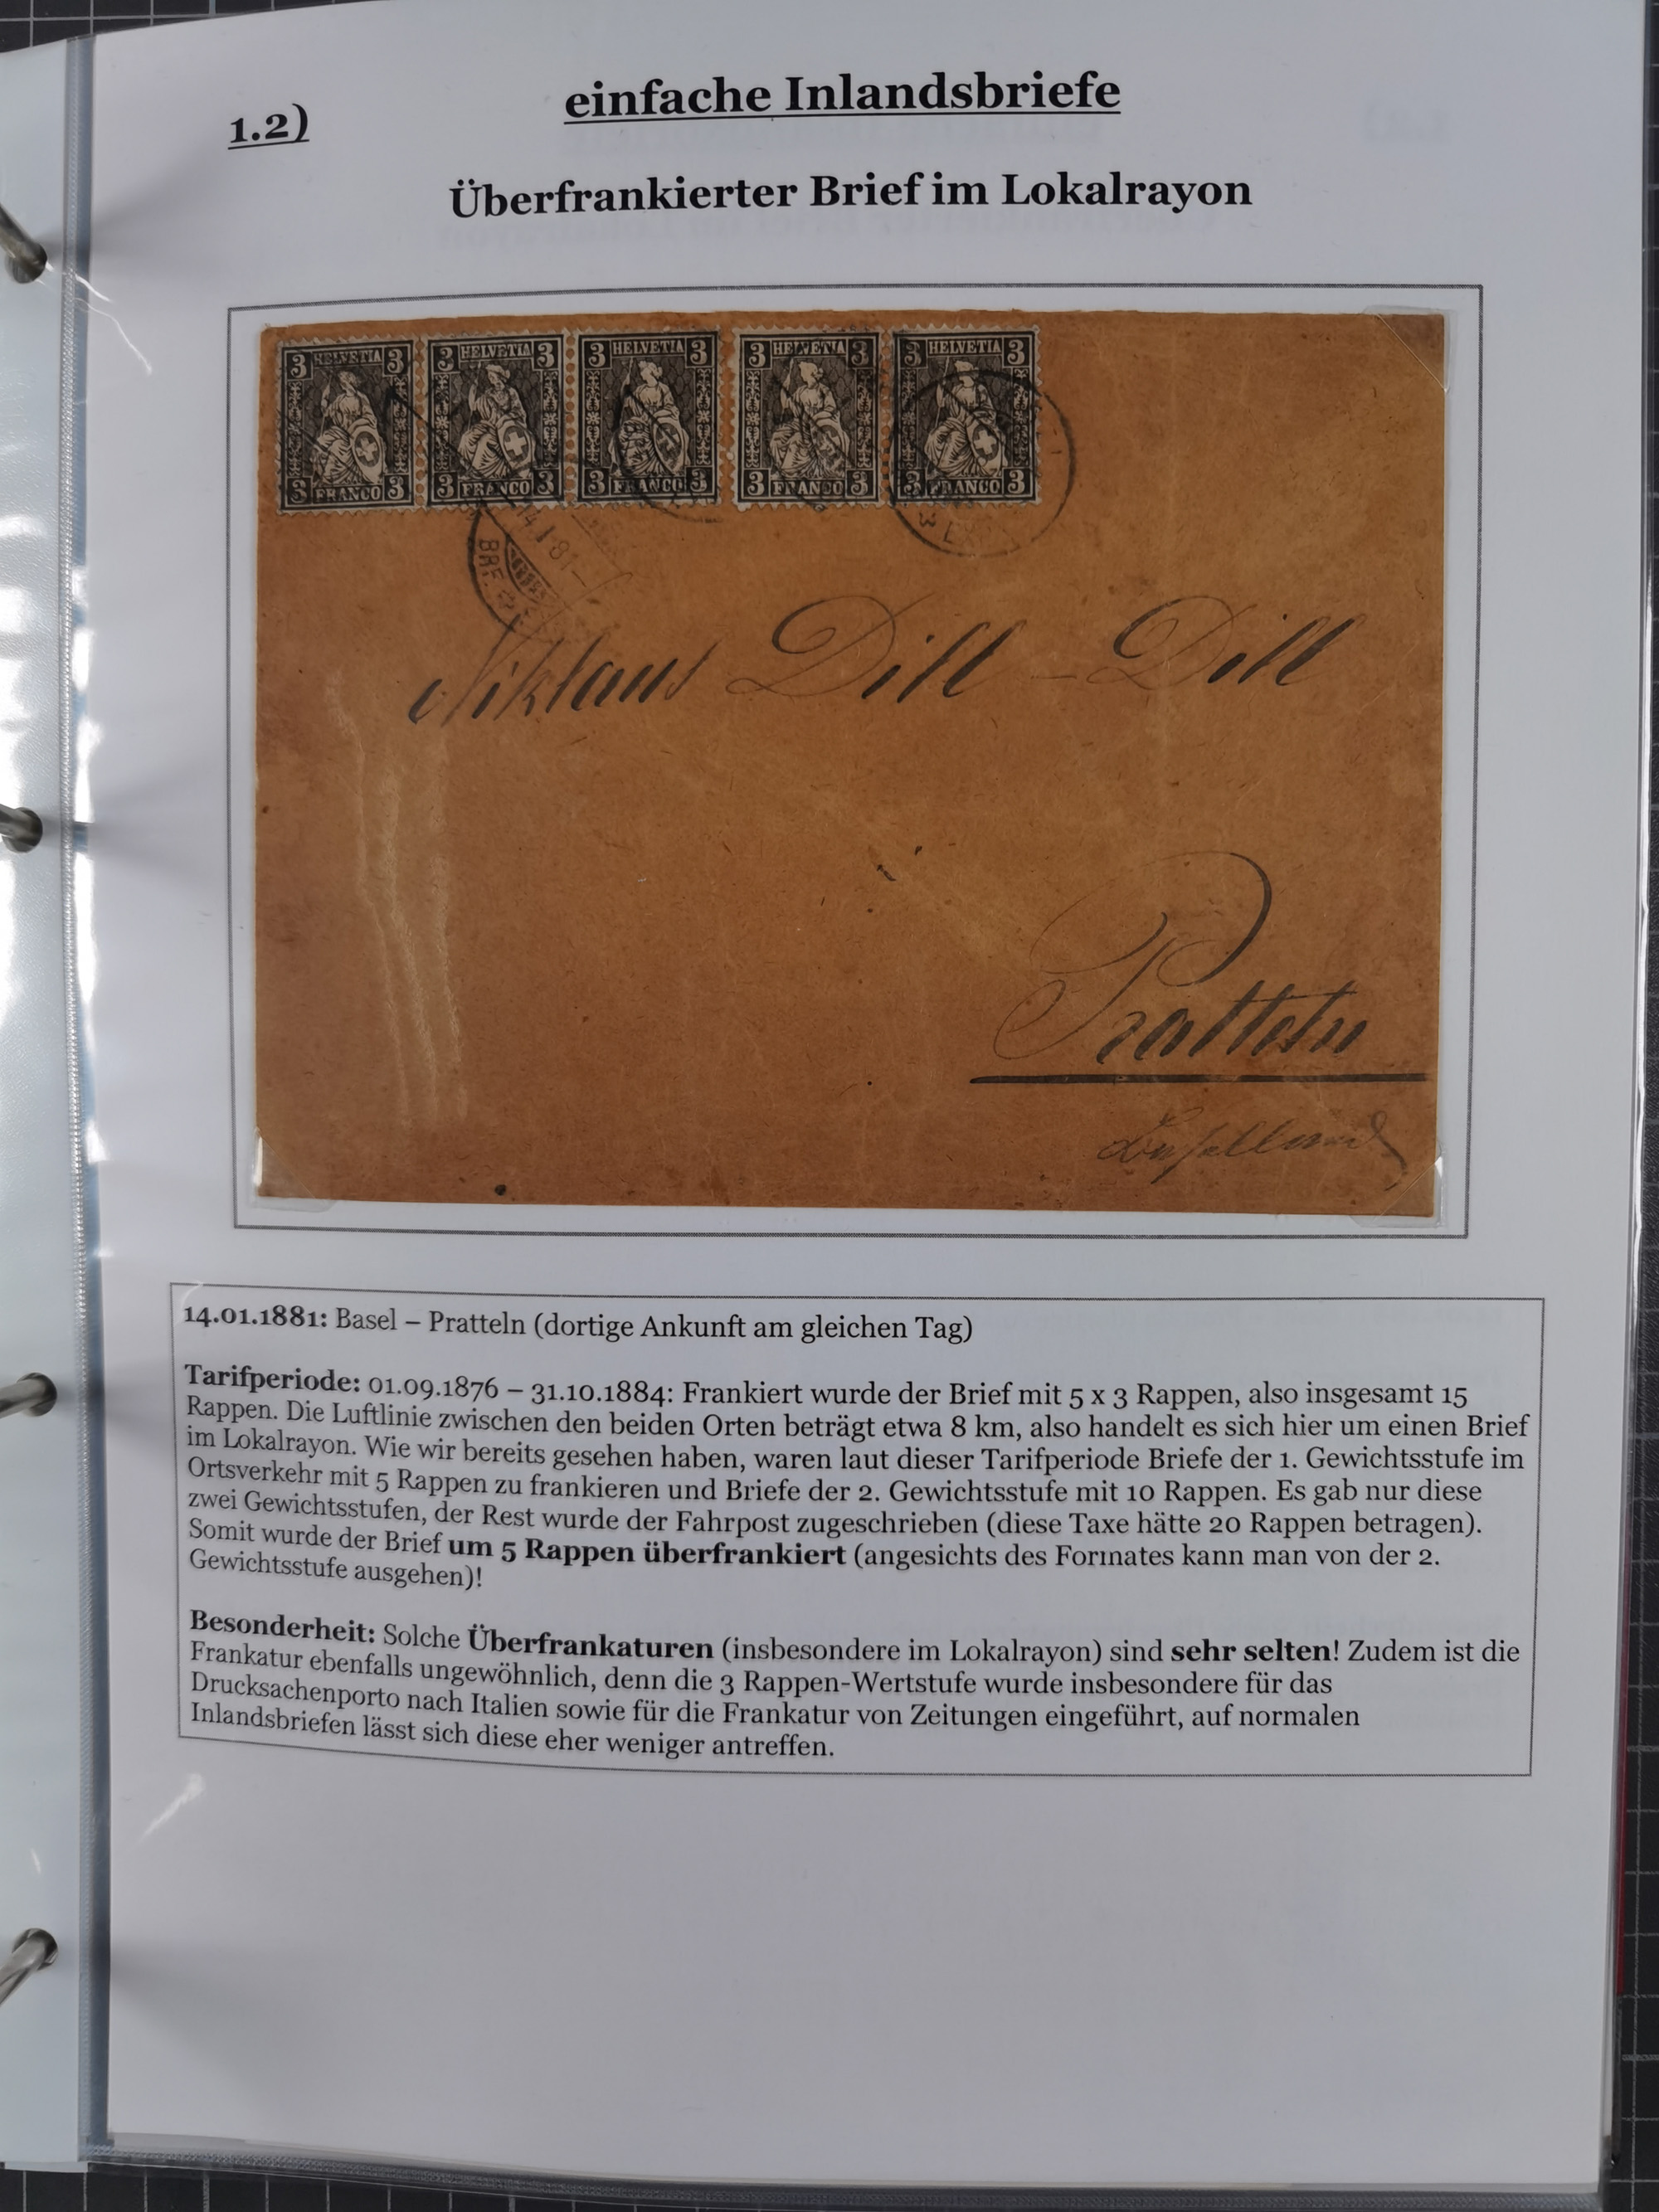 1.2)
einfache Inlandsbriefe
Überfrankierter Brief im Lokalrayon
3 HELVETIA 3 3 HELVETIA 3 3 HELVETIA 3 3 HELVETIA 3 3 HELVETIA 3
3 FRANCO 3 3 FRANCO 3 3 FRANCO 3 3 FRANCO 3 3 FRANCO 3
14.I.81
BRF.
Niklaus Dill – Dill
Pratteln
Baselland
14.01.1881: Basel – Pratteln (dortige Ankunft am gleichen Tag)
Tarifperiode: 01.09.1876 – 31.10.1884: Frankiert wurde der Brief mit 5 x 3 Rappen, also insgesamt 15
Rappen. Die Luftlinie zwischen den beiden Orten beträgt etwa 8 km, also handelt es sich hier um einen Brief
im Lokalrayon. Wie wir bereits gesehen haben, waren laut dieser Tarifperiode Briefe der 1. Gewichtsstufe im
Ortsverkehr mit 5 Rappen zu frankieren und Briefe der 2. Gewichtsstufe mit 10 Rappen. Es gab nur diese
zwei Gewichtsstufen, der Rest wurde der Fahrpost zugeschrieben (diese Taxe hätte 20 Rappen betragen).
Somit wurde der Brief um 5 Rappen überfrankiert (angesichts des Formates kann man von der 2.
Gewichtsstufe ausgehen)!
Besonderheit: Solche Überfrankaturen (insbesondere im Lokalrayon) sind sehr selten! Zudem ist die
Frankatur ebenfalls ungewöhnlich, denn die 3 Rappen-Wertstufe wurde insbesondere für das
Drucksachenporto nach Italien sowie für die Frankatur von Zeitungen eingeführt, auf normalen
Inlandsbriefen lässt sich diese eher weniger antreffen.